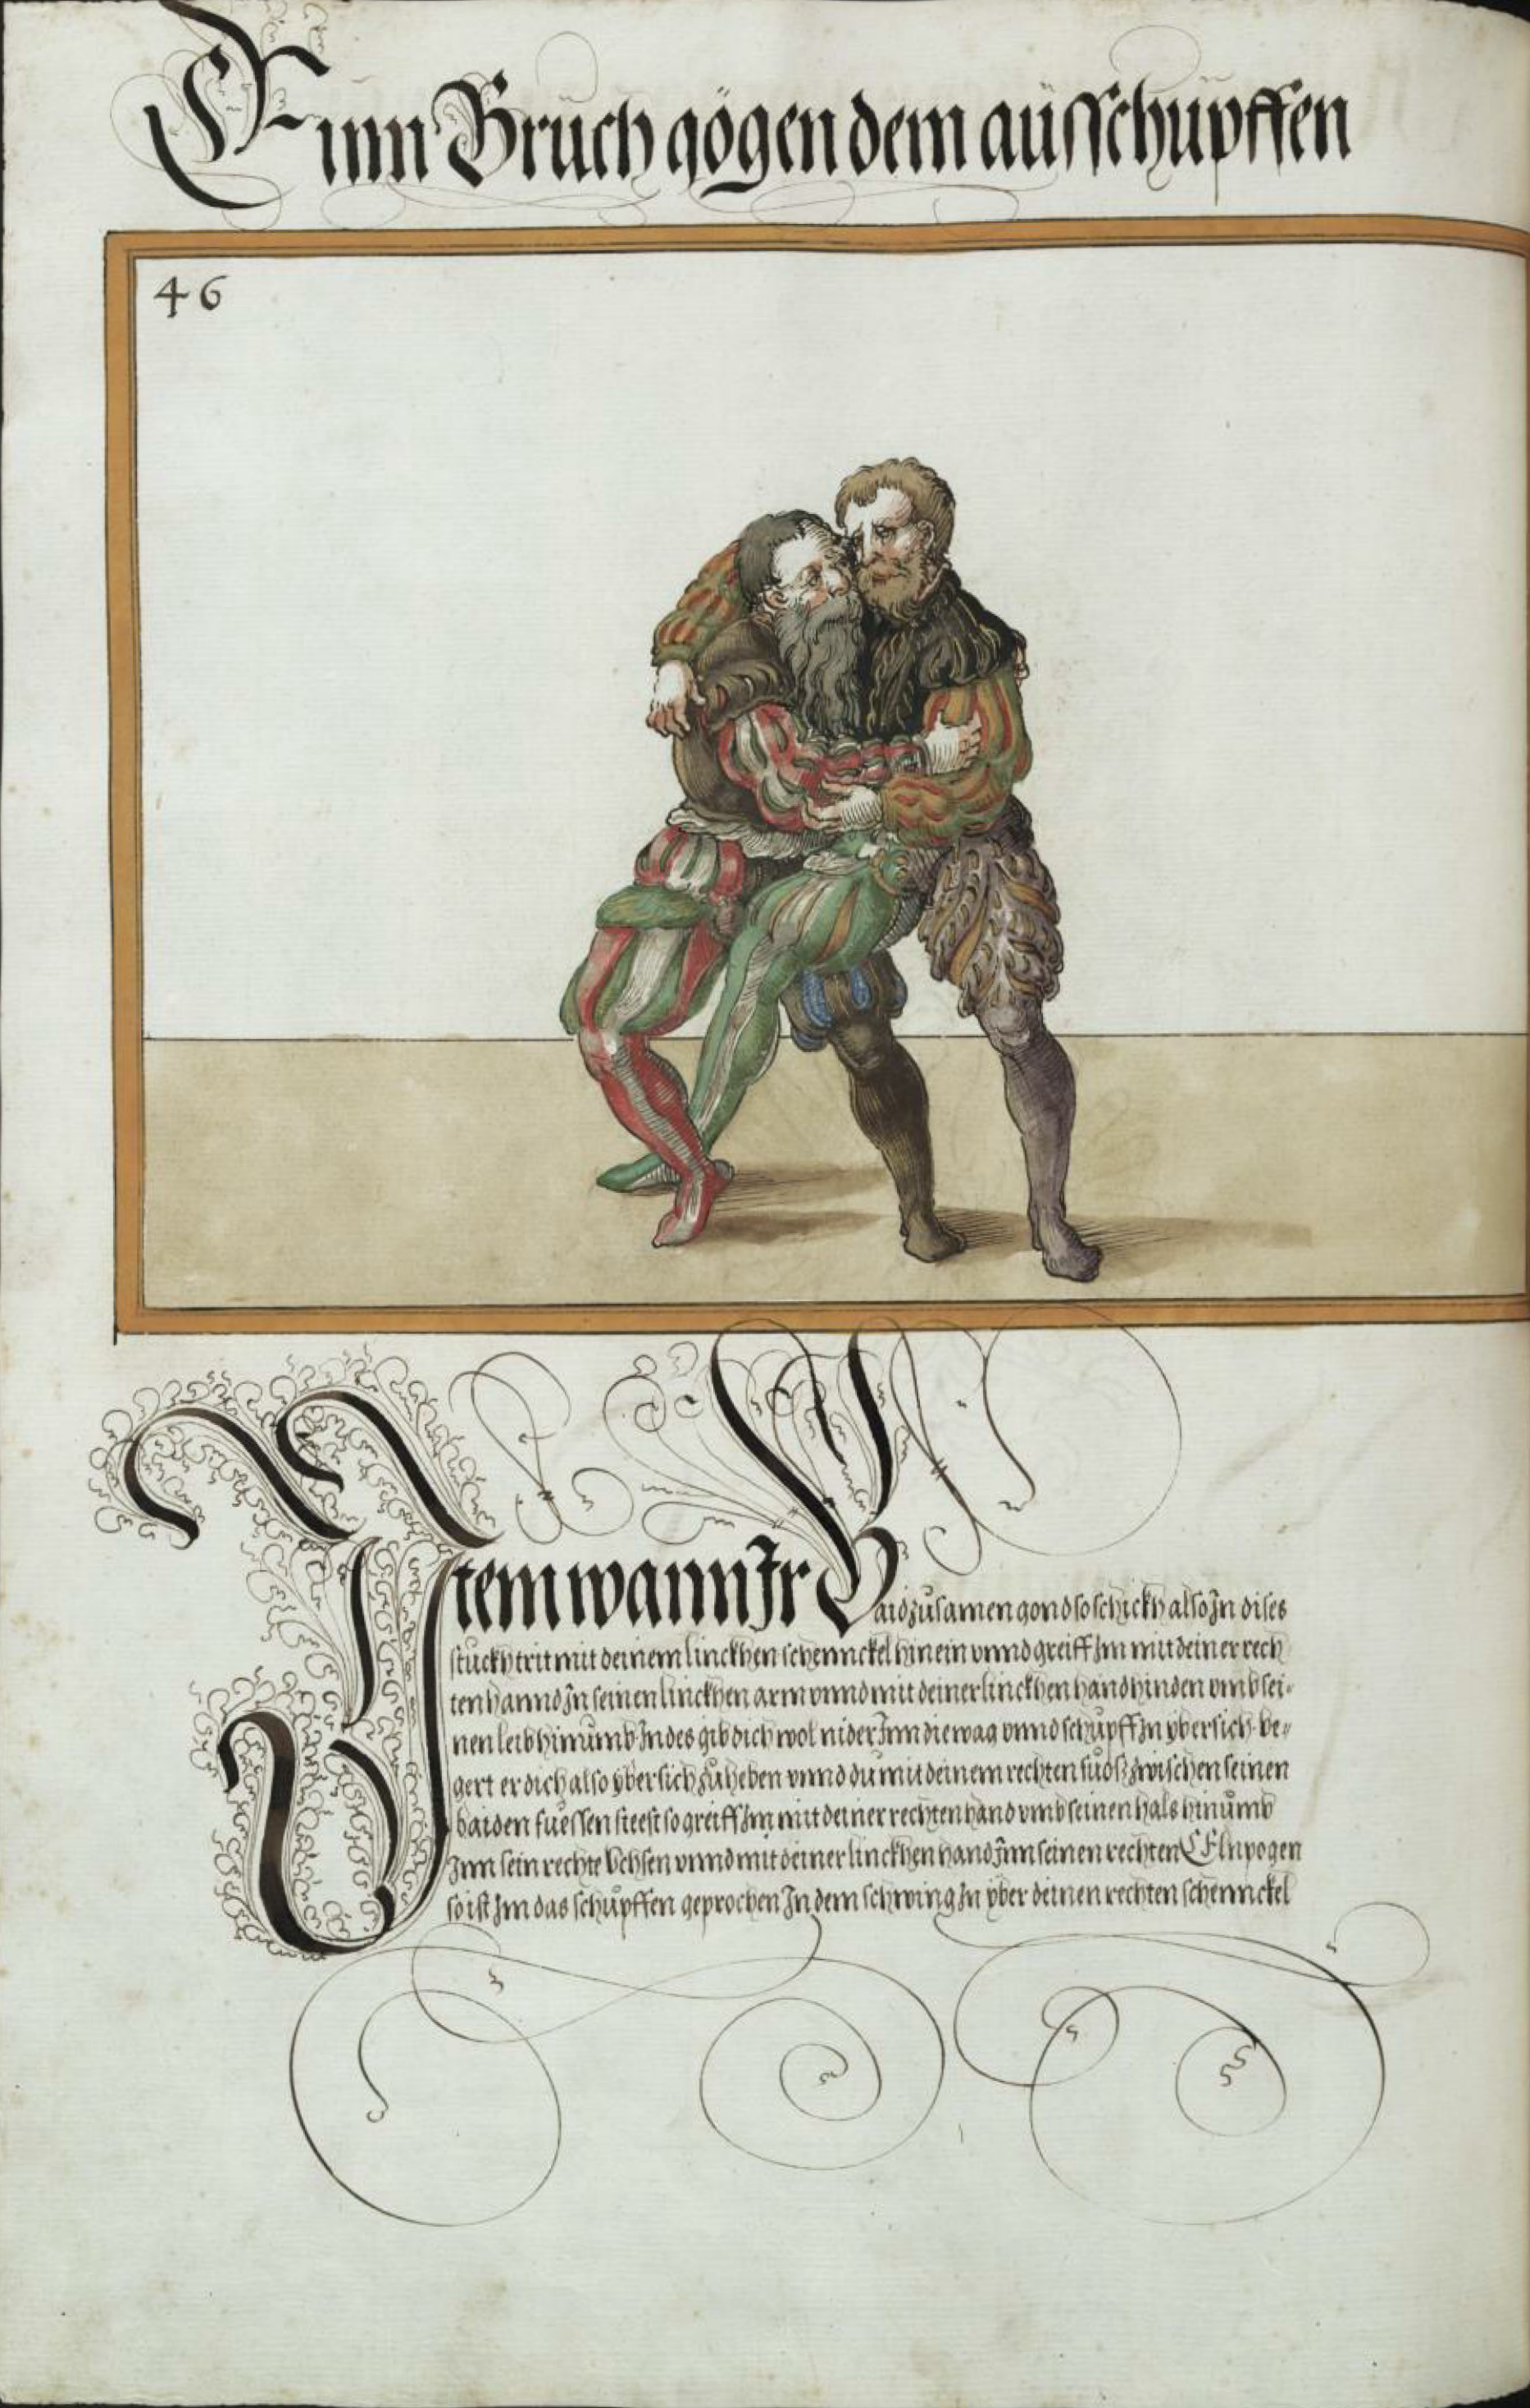 Einn Brüch gögen dem aüsschüpffen
46
Item wann Ir Baid zůsamen gond so schickh also Jn dises
stuckh trit mit deinem linckhen schennckel hinein vnnd greiff Jm mit deiner rech
ten hannd Jn seinen linckhen arm vnnd mit deiner linckhen hand hinden vmb sei=
nen leib hinumb Jndes gib dich wol nider Jnn die wag vnnd schupff Jn ybersich be=
gert er dich also ybersich zůheben vnnd du mit deinem rechten fuos zwischen seinen
baiden fuessen steest so greiff Jm mit deiner rechten hand vmb seinen hals hinumb
Jnn sein rechte Vchsen vnnd mit deiner linckhen hand Jnn seinen rechten Elnpogen
so ist Jm das schupffen geprochen Jn dem schwing Jn yber deinen rechten schennckel